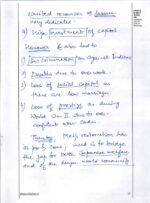 Limited resources of
very dedicated.
4) High Investment of capital
However it also led to
1) against Indians
2) Deaths due to overwork
3) Loss of social capital as
there are low marriage.
4) Loss of prestige as during
World War II due to over
confident war
Thus, Meiji restoration has
its pro & cons, need is to bridge
the gap for Japanese welfare
and of the larger world community